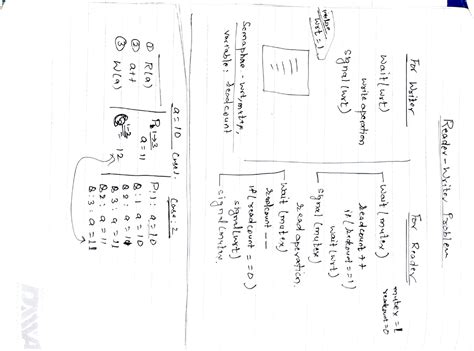 Reader-Writer Problem
For Writer
Wait (wrt)
write operation
signal (wrt)
wrt = 1
Semaphore - wrt, mutex,
variable: readcount
For Reader
mutex = 1
readcount = 0
Wait (mutex)
readcount ++
if (readcount == 1)
wait (wrt)
signal (mutex)
read operation
wait (mutex)
readcount --
if (readcount == 0)
signal (wrt)
signal (mutex
a = 10
① R(a)
② a++
③ W(a)
Case 1
P: 1→3
a = 11
Q: 1→3
12
Case: 2
P: 1: a = 10
Q: 1: a = 10
Q 2: a = 11
Q: 3: a = 11
P: 2: a = 11
Q: 3: a = 11